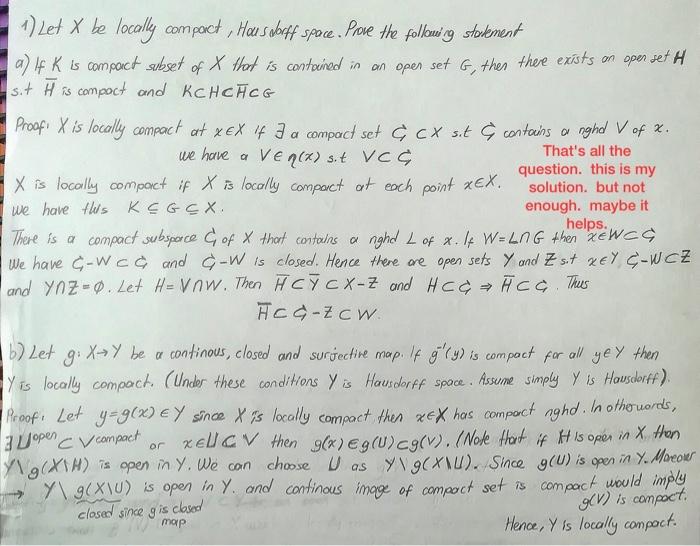 1) Let X be locally compact, Hausdorff space. Prove the following statement
a) If K is compact subset of X that is contained in an open set G, then there exists an open set H
s.t H̅ is compact and K⊂H⊂H̅⊂G
Proof: X is locally compact at x∈X if ∃ a compact set Ç ⊂X s.t Ç contains a nghd V of x.
we have a V∈η(x) s.t V⊂Ç
X is locally compact if X is locally compact at each point x∈X.
we have this K⊆G⊆X.
That's all the
question. this is my
solution. but not
enough. maybe it
helps.
There is a compact subspace Ç of X that contains a nghd L of x. If W=L∩G then x∈W⊂Ç
We have Ç-W⊂Ç and Ç-W is closed. Hence there are open sets Y and Z s.t x∈Y, Ç-W⊂Z
and Y∩Z=∅. Let H=V∩W. Then H̅⊂Y̅⊂X-Z and H⊂Ç ⇒ H̅⊂Ç. Thus
H̅⊂Ç-Z⊂W.
b) Let g: X→Y be a continous, closed and surjective map. If g⁻¹(y) is compact for all y∈Y then
Y is locally compact. (Under these conditions Y is Hausdorff space. Assume simply Y is Hausdorff).
Proof: Let y=g(x)∈Y since X is locally compact then x∈X has compact nghd. In otherwords,
∃ U open ⊂ V compact or x∈U⊂V then g(x)∈g(U)⊂g(V). (Note that if H is open in X then
Y\g(X\H) is open in Y. We can choose U as Y\g(X\U). Since g(U) is open in Y. Moreover
→ Y\g(X\U) is open in Y. and continous image of compact set is compact would imply
closed since g is closed
map
g(V) is compact.
Hence, Y is locally compact.